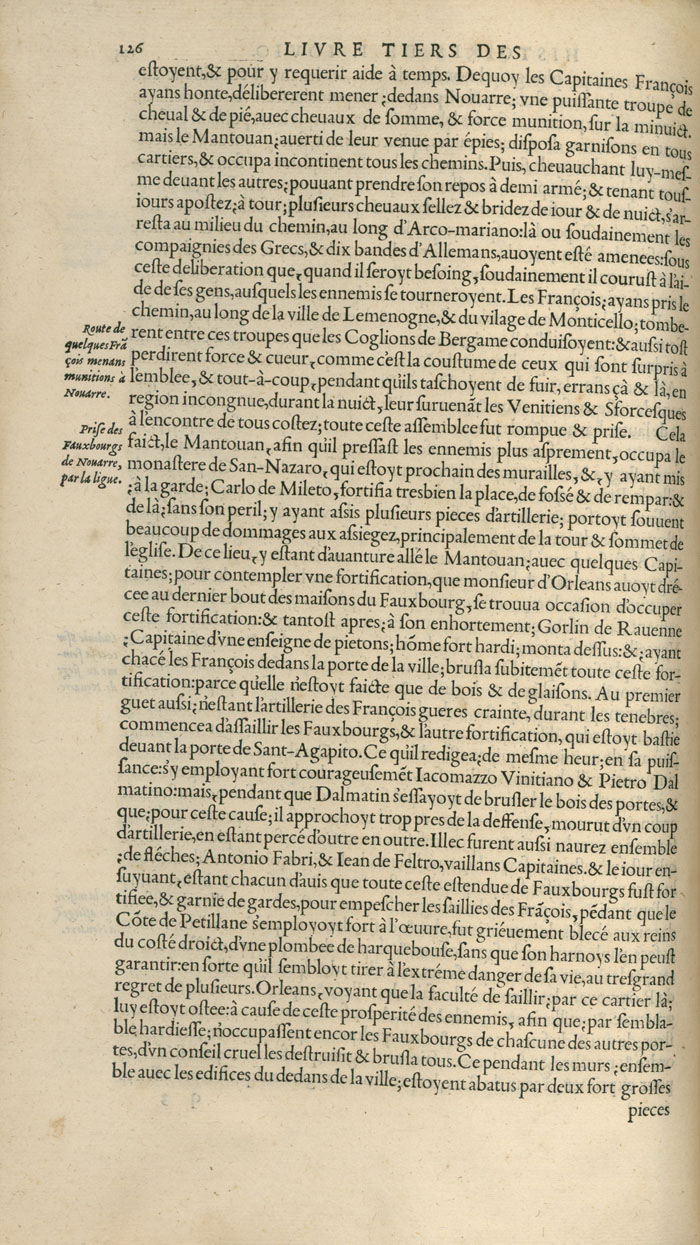 126 LIVRE TIERS DES
eſtoyent,& pour y requerir aide à temps. Dequoy les Capitaines François
ayans honte,délibererent mener ;dedans Nouarre; vne puiſſante troupe de
cheual & de pié,auec cheuaux de ſomme, & force munition,ſur la minuict.
mais le Mantouan;auerti de leur venue par épies; diſpoſa garniſons en tous
cartiers,& occupa incontinent tous les chemins. Puis, cheuauchant luy-meſ-
me deuant les autres;pouuant prendre ſon repos à demi armé;& tenant touſ-
iours apoſtez;à tour;pluſieurs cheuaux ſellez & bridez de iour & de nuict,s'ar-
reſta au milieu du chemin,au long d'Arco-mariano:là ou ſoudainement les
compaignies des Grecs,& dix bandes d'Allemans,auoyent eſté amenees:ſous
ceſte deliberation que,quand il ſeroyt beſoing,ſoudainement il couruſt à l'ai-
de de ſes gens,auſquels les ennemis ſe tourneroyent. Les François;ayans pris le
chemin,au long de la ville de Lemenogne,& du vilage de Monticello;tombe-
Route de
quelques Frã
çois menans
munitions à
Nouarre.
rent entre ces troupes que les Coglions de Bergame conduiſoyent:& auſsi toſt
perdirent force & cueur,comme c'eſt la couſtume de ceux qui ſont ſurpris à
l'emblee,& tout-à-coup,pendant qu'ils taſchoyent de fuir, errans çà & là,en
region incongnue,durant la nuict,leur ſuruenãt les Venitiens & Sforceſques
à l'encontre de tous coſtez;toute ceſte aſſemblee fut rompue & priſe. Cela
Priſe des
Fauxbourgs
de Nouarre,
par la ligue.
faict,le Mantouan,afin qu'il preſſaſt les ennemis plus aſprement,occupa le
monaſtere de San-Nazaro,qui eſtoyt prochain des murailles,&,y ayant mis
;à la garde; Carlo de Mileto,fortifia tresbien la place,de foſſé & de rempar:&
de là;ſans ſon peril;y ayant aſsis pluſieurs pieces d'artillerie; portoyt ſouuent
beaucoup de dommages aux aſsiegez,principalement de la tour & ſommet de
l'egliſe. De ce lieu,y eſtant d'auanture allé le Mantouan;auec quelques Capi-
taines;pour contempler vne fortification,que monſieur d'Orleans auoyt dré-
cee au dernier bout des maiſons du Fauxbourg,ſe trouua occaſion d'occuper
ceſte fortification:& tantoſt apres;à ſon enhortement; Gorlin de Rauenne
;Capitaine d'vne enſeigne de pietons; hõme fort hardi;monta deſſus:&;ayant
chacé les François dedans la porte de la ville;bruſla ſubitemẽt toute ceſte for-
tification:parce qu'elle n'eſtoyt faicte que de bois & de glaiſons. Au premier
guet auſsi;n'eſtant l'artillerie des François gueres crainte, durant les tenebres;
commencea d'aſſaillir les Fauxbourgs,& l'autre fortification, qui eſtoyt baſtie
deuant la porte de Sant-Agapito. Ce qu'il redigea;de meſme heur;en ſa puiſ-
ſance:s'y employant fort courageuſemẽt Iacomazzo Vinitiano & Pietro Dal
matino:mais,pendant que Dalmatin s'eſſayoyt de bruſler le bois des portes,&
que;pour ceſte cauſe;il approchoyt trop pres de la deffenſe, mourut d'vn coup
d'artillerie,en eſtant percé d'outre en outre. Illec furent auſsi naurez enſemble
;de fléches; Antonio Fabri,& Iean de Feltro,vaillans Capitaines.& le iour en-
ſuyuant,eſtant chacun d'auis que toute ceſte eſtendue de Fauxbourgs fuſt for
tifiee,& garnie de gardes,pour empeſcher les ſaillies des Frãçois,pẽdant que le
Cõte de Petillane s'employoyt fort à l'œuure,fut griéuement blecé aux reins
du coſté droict,d'vne plombee de harquebouſe,ſans que ſon harnoys l'en peuſt
garantir:en ſorte qu'il ſembloyt tirer à l'extréme danger de ſa vie,au treſgrand
regret de pluſieurs. Orleans,voyant que la faculté de ſaillir;par ce cartier là;
luy eſtoyt oſtee:à cauſe de ceſte proſperité des ennemis, afin que;par ſembla-
ble hardieſſe;n'occupaſſent encor les Fauxbourgs de chaſcune des autres por-
tes,d'vn conſeil cruel les deſtruiſit & bruſla tous. Ce pendant les murs ;enſem-
ble auec les edifices du dedans de la ville;eſtoyent abatus par deux fort groſſes
pieces